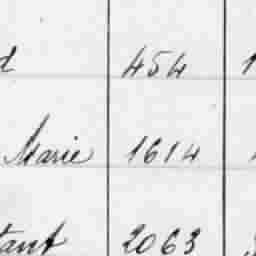 d 454 1
Marie 1614
tant 2063